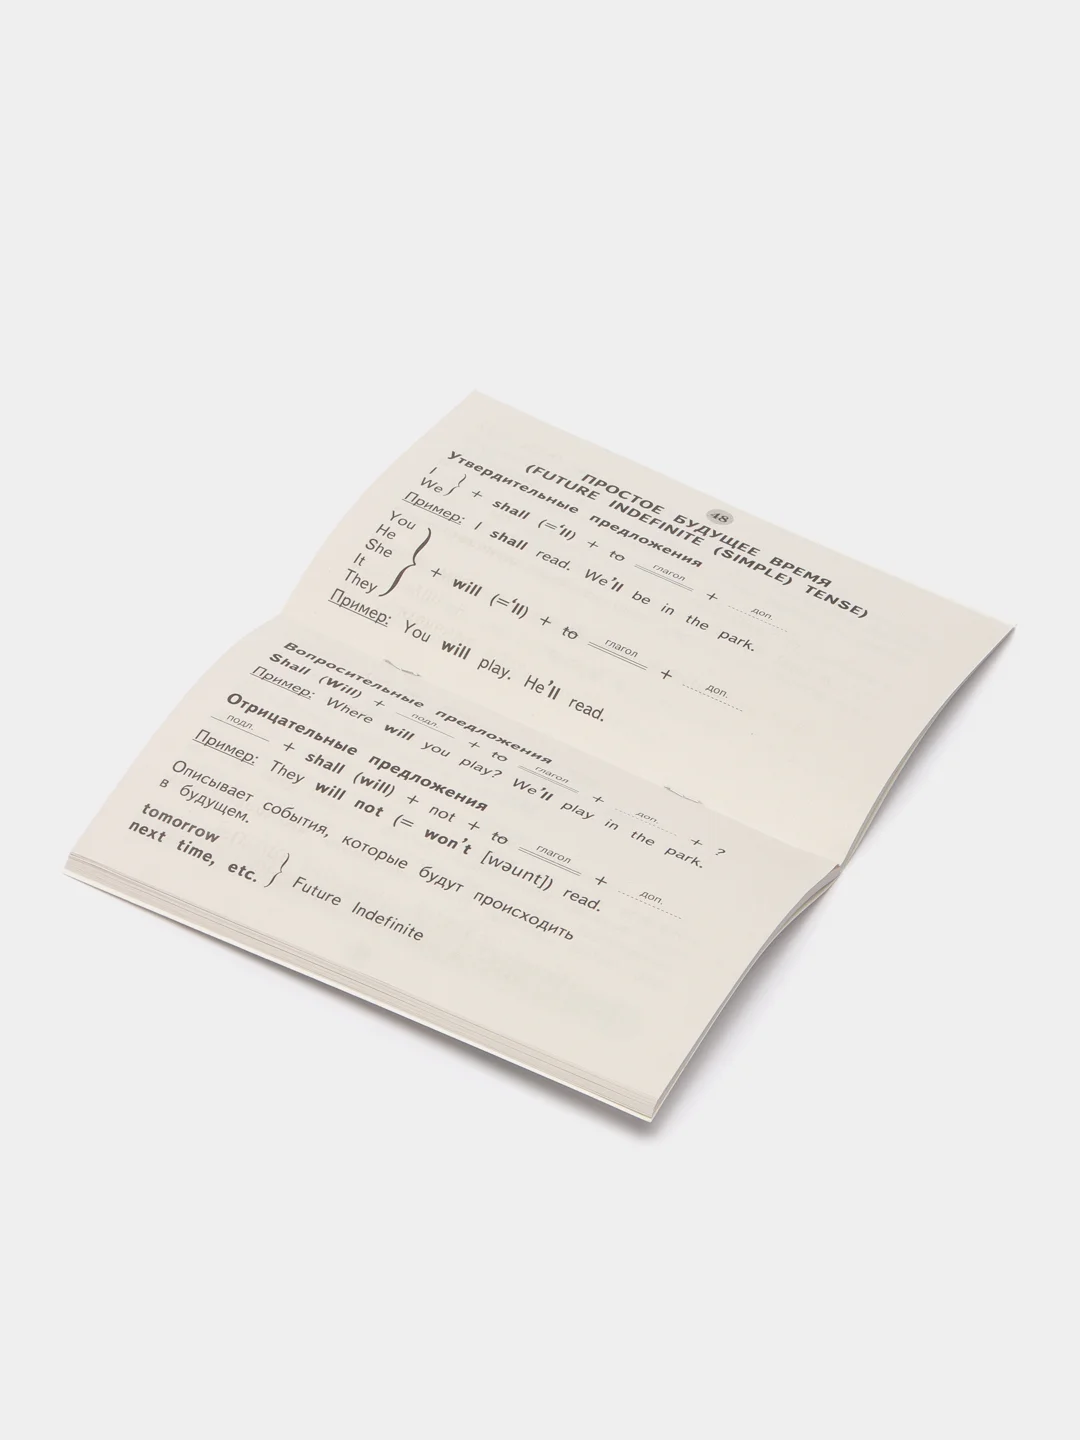 48
ПРОСТОЕ БУДУЩЕЕ ВРЕМЯ
(FUTURE INDEFINITE (SIMPLE) TENSE)
Утвердительные предложения
I
We
} + shall (='ll) + to глагол + доп.
Пример: I shall read. We'll be in the park.
You
He
She
It
They
} + will (='ll) + to глагол + доп.
Пример: You will play. He'll read.
Вопросительные предложения
Shall (Will) + подл. + to глагол + доп. + ?
Пример: Where will you play? We'll play in the park.
Отрицательные предложения
подл. + shall (will) + not + to глагол + доп.
Пример: They will not (= won't [wəunt]) read.
Описывает события, которые будут происходить
в будущем.
tomorrow
next time, etc. } Future Indefinite